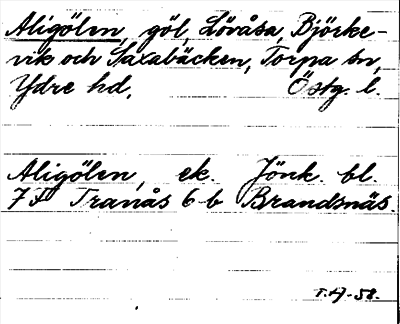 Aligölen, göl, Lövåsa, Björke-
vik och Saxabäcken, Torpa sn,
Ydre hd, Östg. l.
Aligölen, ek. Jönk. bl.
7F Tranås 6 b Brandsnäs.